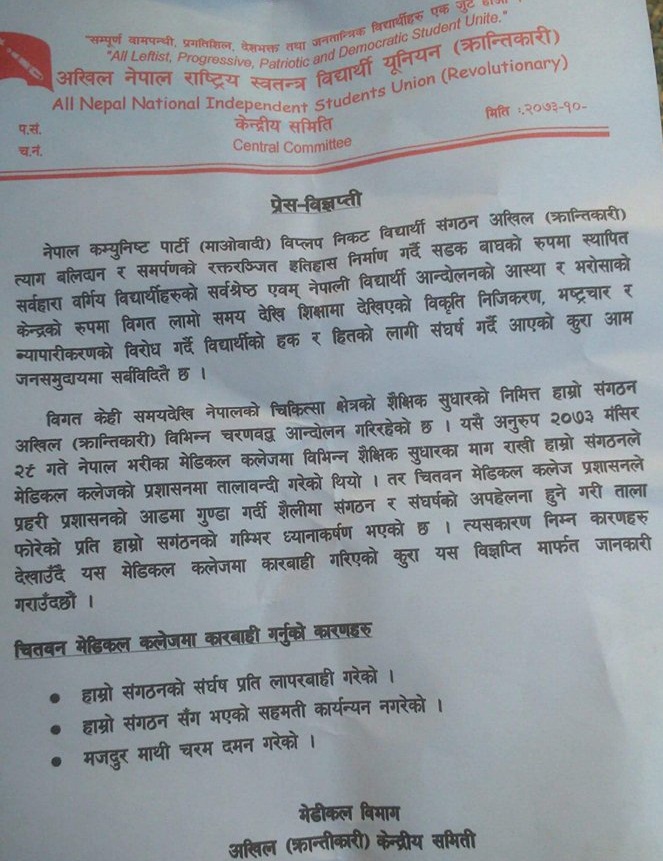 "सम्पूर्ण वामपन्थी, प्रगतिशिल, देशभक्त तथा जनतान्त्रिक विद्यार्थीहरु एक जुट
"All Leftist, Progressive, Patriotic and Democratic Student Unite."
अखिल नेपाल राष्ट्रिय स्वतन्त्र विद्यार्थी यूनियन (क्रान्तिकारी)
All Nepal National Independent Students Union (Revolutionary)
प.सं.
केन्द्रीय समिति
मिति :.२०७३-१०-
च.नं.
Central Committee
प्रेस-विज्ञप्ती
नेपाल कम्युनिष्ट पार्टी (माओवादी) विप्लप निकट विद्यार्थी संगठन अखिल (क्रान्तिकारी)
त्याग बलिदान र समर्पणको रक्तरञ्जित इतिहास निर्माण गर्दै सडक बाघको रुपमा स्थापित
सर्वहारा वर्गिय विद्यार्थीहरुको सर्वश्रेष्ठ एवम् नेपाली विद्यार्थी आन्दोलनको आस्था र भरोसाको
केन्द्रको रुपमा विगत लामो समय देखि शिक्षामा देखिएको विकृति निजिकरण, भष्ट्रचार र
ब्यापारीकरणको विरोध गर्दै विद्यार्थीको हक र हितको लागी संघर्ष गर्दै आएको कुरा आम
जनसमुदायमा सर्बविदितै छ ।
विगत केही समयदेखि नेपालको चिकित्सा क्षेत्रको शैक्षिक सुधारको निमित्त हाम्रो संगठन
अखिल (क्रान्तिकारी) विभिन्न चरणवद्ध आन्दोलन गरिरहेको छ । यसै अनुरुप २०७३ मंसिर
२९ गते नेपाल भरीका मेडिकल कलेजमा विभिन्न शैक्षिक सुधारका माग राखी हाम्रो संगठनले
मेडिकल कलेजको प्रशासनमा तालावन्दी गरेको थियो । तर चितवन मेडिकल कलेज प्रशासनले
प्रहरी प्रशासनको आडमा गुण्डा गर्दी शैलीमा संगठन र संघर्षको अपहेलना हुने गरी ताला
फोरेको प्रति हाम्रो सगंठनको गम्भिर ध्यानाकर्षण भएको छ । त्यसकारण निम्न कारणहरु
देखाउँदै यस मेडिकल कलेजमा कारबाही गरिएको कुरा यस विज्ञप्ति मार्फत जानकारी
गराउँदछौं ।
चितवन मेडिकल कलेजमा कारबाही गर्नुको कारणहरु
● हाम्रो संगठनको संर्घष प्रति लापरबाही गरेको ।
● हाम्रो संगठन सँग भएको सहमती कार्यन्यन नगरेको ।
● मजदुर माथी चरम दमन गरेको ।
मेडीकल विभाग
अखिल (क्रान्तीकारी) केन्द्रीय समिती